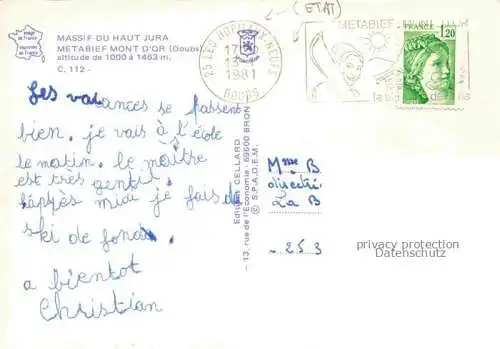 (ETAT)
Image de France
MASSIF DU HAUT JURA
METABIEF MONT D'OR (Doubs)
altitude de 1000 à 1463 m.
C. 112 -
25 LES HOPITAUX NEUFS
1981
DOUBS
METABIEF
FRANCE
1,20
Les vacances se passent
bien. je vais à l'école
le matin. le maître
est très gentil
l'après midi je fais de
ski de fond.
a bientot
Christian
Editions CELLARD
- 13, rue de l'Economie - 69500 BRON
© S.P.A.D.E.M.
Mme B
directri
La B
253
privacy protection
Datenschutz